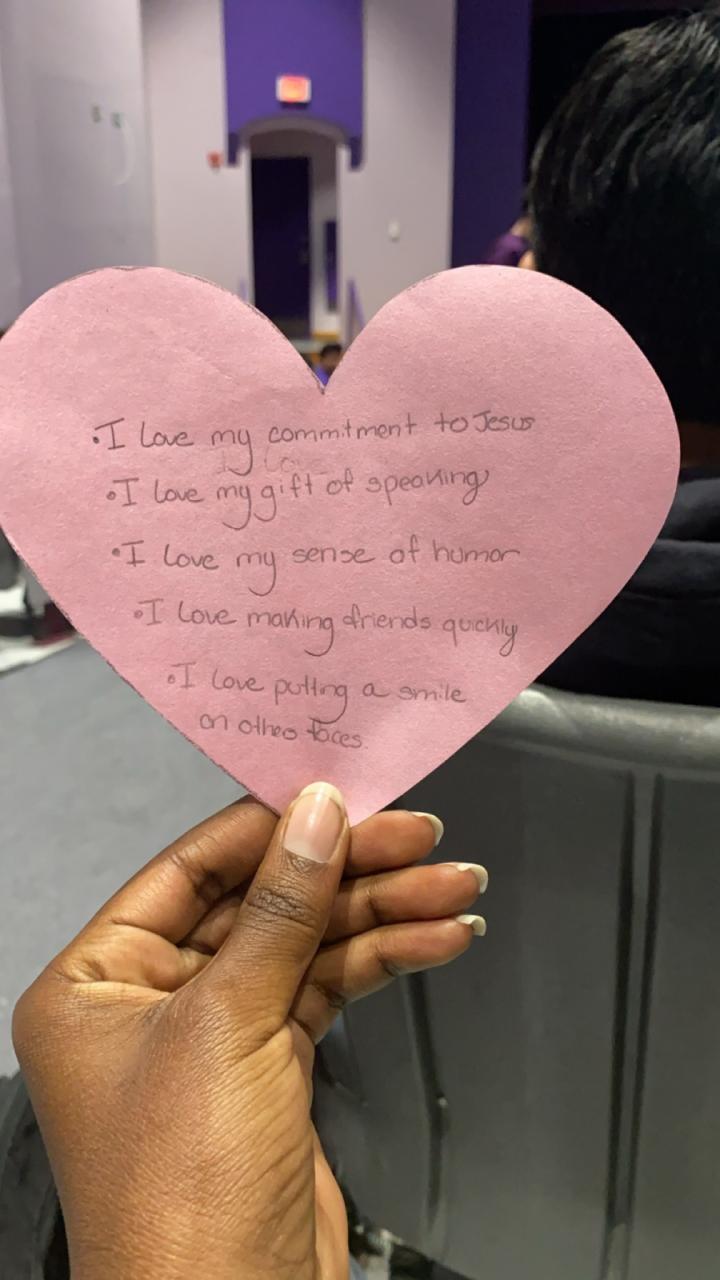 •I love my commitment to Jesus
•I love my gift of speaking
•I love my sense of humor
•I love making friends quickly
•I love putting a smile
on others faces.